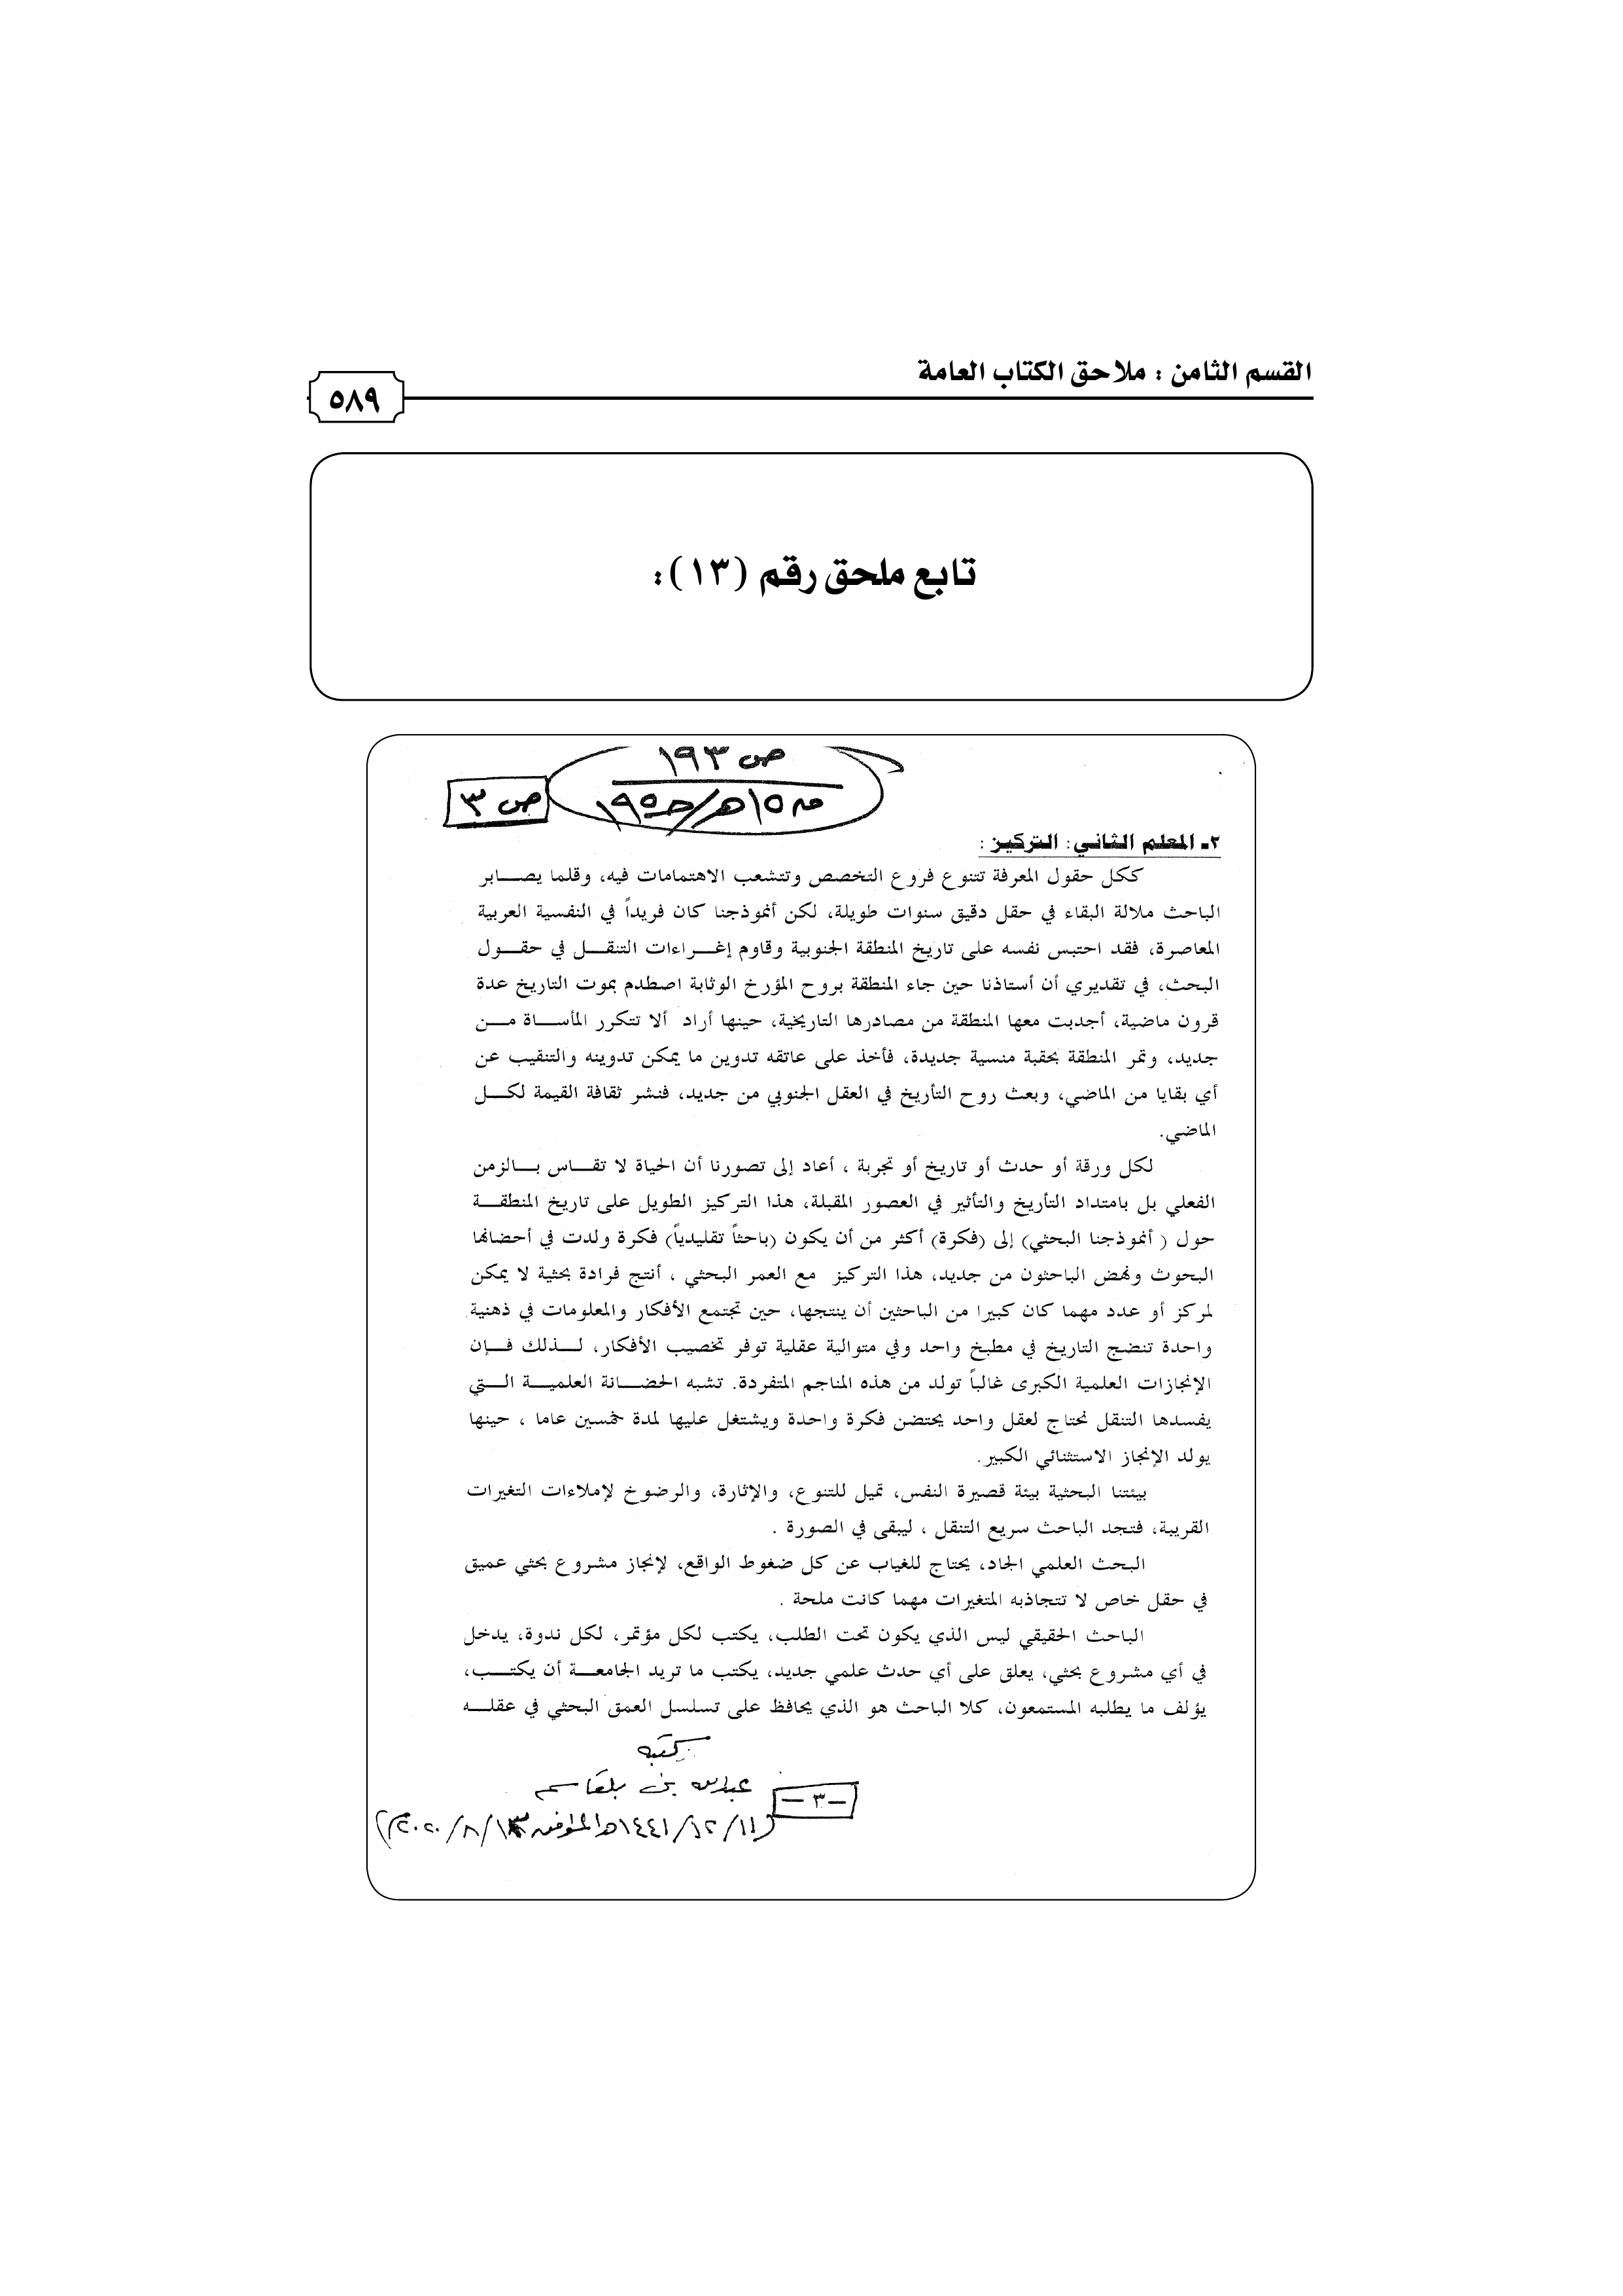 القسم الثامن : ملاحق الكتاب العامة
٥٨٩
تابع ملحق رقم (١٣):
ص ١٩٣
ص ٣
٢ـ المعلم الثاني: التركيز :
ككل حقول المعرفة تتنوع فروع التخصص وتتشعب الاهتمامات فيه، وقلما يصـــابر
الباحث ملالة البقاء في حقل دقيق سنوات طويلة، لكن أنموذجنا كان فريداً في النفسية العربية
المعاصرة، فقد احتبس نفسه على تاريخ المنطقة الجنوبية وقاوم إغـــراءات التنقـــل في حقـــول
البحث، في تقديري أن أستاذنا حين جاء المنطقة بروح المؤرخ الوثابة اصطدم بموت التاريخ عدة
قرون ماضية، أجدبت معها المنطقة من مصادرها التاريخية، حينها أراد ألا تتكرر المأســاة مـــن
جديد، وتمر المنطقة بحقبة منسية جديدة، فأخذ على عاتقه تدوين ما يمكن تدوينه والتنقيب عن
أي بقايا من الماضي، وبعث روح التأريخ في العقل الجنوبي من جديد، فنشر ثقافة القيمة لكـــل
الماضي.
لكل ورقة أو حدث أو تاريخ أو تجربة ، أعاد إلى تصورنا أن الحياة لا تقـــاس بـــالزمن
الفعلي بل بامتداد التأريخ والتأثير في العصور المقبلة، هذا التركيز الطويل على تاريخ المنطقـــة
حول ( أنموذجنا البحثي) إلى (فكرة) أكثر من أن يكون (باحثاً تقليدياً) فكرة ولدت في أحضانها
البحوث ونهض الباحثون من جديد، هذا التركيز مع العمر البحثي ، أنتج فرادة بحثية لا يمكن
لمركز أو عدد مهما كان كبيرا من الباحثين أن ينتجها، حين تجتمع الأفكار والمعلومات في ذهنية
واحدة تنضج التاريخ في مطبخ واحد وفي متوالية عقلية توفر تخصيب الأفكار، لـــذلك فـــإن
الإنجازات العلمية الكبرى غالباً تولد من هذه المناجم المتفردة. تشبه الحضـــانة العلميـــة الـــتي
يفسدها التنقل نحتاج لعقل واحد يحتضن فكرة واحدة ويشتغل عليها لمدة خمسين عاما ، حينها
يولد الإنجاز الاستثنائي الكبير.
بيئتنا البحثية بيئة قصيرة النفس، تميل للتنوع، والإثارة، والرضوخ لإملاءات التغيرات
القريبة، فتجد الباحث سريع التنقل ، ليبقى في الصورة .
البحث العلمي الجاد، يحتاج للغياب عن كل ضغوط الواقع، لإنجاز مشروع بحثي عميق
في حقل خاص لا تتجاذبه المتغيرات مهما كانت ملحة .
الباحث الحقيقي ليس الذي يكون تحت الطلب، يكتب لكل مؤتمر، لكل ندوة، يدخل
في أي مشروع بحثي، يعلق على أي حدث علمي جديد، يكتب ما تريد الجامعـــة أن يكتـــب،
يؤلف ما يطلبه المستمعون، كلا الباحث هو الذي يحافظ على تسلسل العمق البحثي في عقلـــه
كتبه
عبدالله بن بلقاسم
– ٣ –
(١١/ ١٢/ ١٤٤١هـ الموافق ١٣/ ٨/ ٢٠٢٠م)